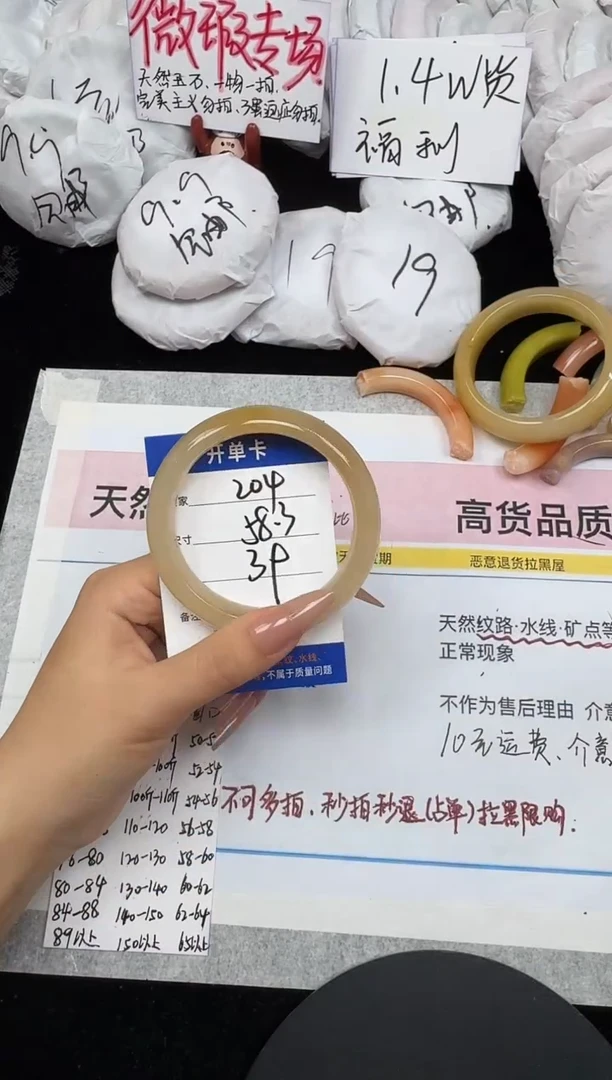 微瑕专场
天然五万,一物一拍,
完美主义勿拍、强迫症勿拍.
1.4W货
福利
9.9
9.9
包邮
19
19
开单卡
204
尺寸
58.3
39
天然
高货品质
恶意退货拉黑屋
天然纹路·水线·矿点等
正常现象
不作为售后理由 介意
10元运费、介意
不属于质量问题
不可多拍、秒拍秒退(占单)拉黑限购.
52-54
100斤-110斤 54-56
110-120 56-58
120-130 58-60
80-84 130-140 60-62
84-88 140-150 62-64
89以上 150以上 65以上